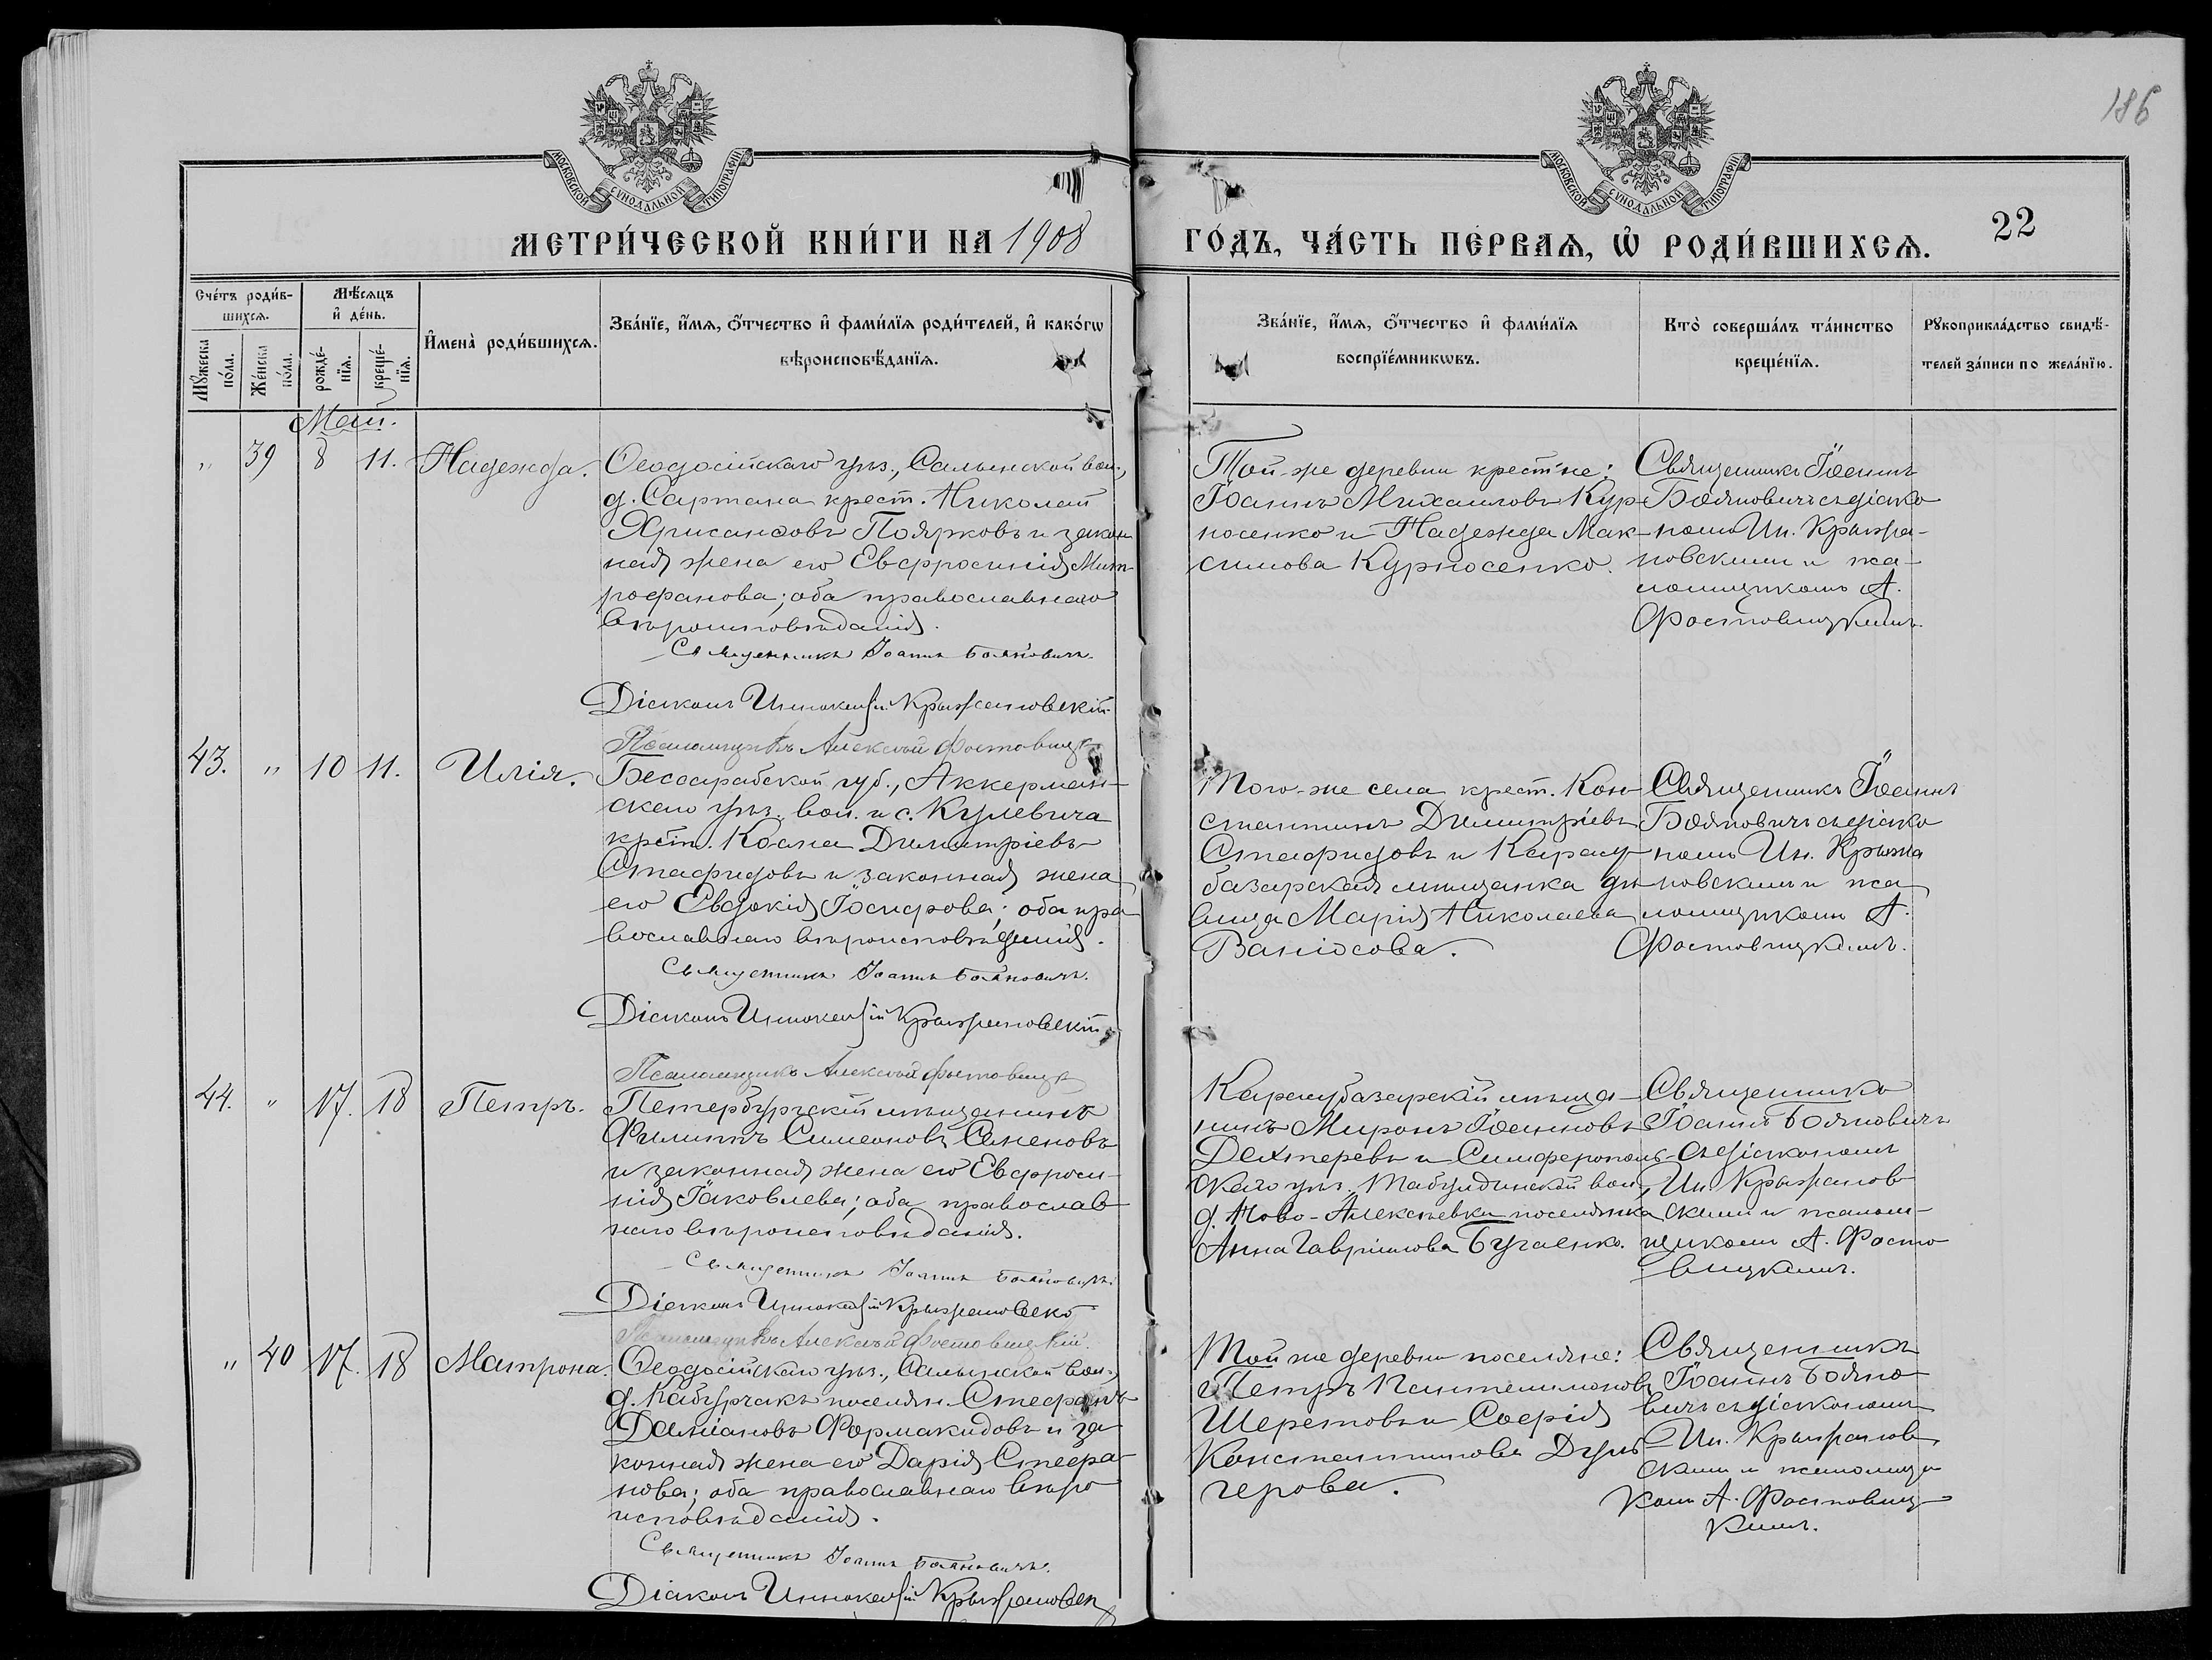 186
МОСКОВСКОЙ СѴНОДАЛЬНОЙ ТИПОГРАФІИ
МОСКОВСКОЙ СѴНОДАЛЬНОЙ ТИПОГРАФІИ
МЕТРИ́ЧЕСКОЙ КНИ́ГИ НА 1908
ГО́ДЪ, ЧА́СТЬ ПЕ́РВАѦ, Ѡ҆ РОДИ́ВШИХСѦ.
22
Сче́тъ роди́в-
шихсѧ.
Мꙋ́жеска
по́ла.
Же́нска
по́ла.
Мѣ́сѧцъ
и҆ де́нь.
рожде́-
нїѧ.
креще́-
нїѧ.
И҆мена̀ роди́вшихсѧ.
Зва́нїе, и҆́мѧ, ѻ҆́тчество и҆ фами́лїѧ роди́телей, и҆ како́гѡ
вѣроисповѣ́данїѧ.
Зва́нїе, и҆́мѧ, ѻ҆́тчество и҆ фами́лїѧ
воспрїе́мникѡвъ.
Кто̀ соверша́лъ та́инство
креще́нїѧ.
Рꙋкоприкла́дство свидѣ́-
телей за́писи по жела́нїю.
Май.
" 39 8 11. Надежда.
Ѳеодосійскаго уѣз., Салынской вол.,
д. Сартана крест. Николай
Хрисанѳовъ Поярковъ и закон
ная жена его Евфросинія Мит-
рофанова; оба православнаго
вѣроисповѣданія.
Священникъ Іоаннъ Бояновичъ.
Діаконъ Иннокентій Крыжановскій
Псаломщикъ Алексѣй Фостовиц
Той-же деревни крест-не:
Іоаннъ Михаиловъ Кур-
носенко и Надежда Мак-
симова Курносенко.
Священникъ Іоаннъ
Бояновичъ съ діако
номъ Ин. Крыжа-
новскимъ и пса-
ломщикомъ А.
Фостовицкимъ.
43. " 10 11. Илія.
Бессарабской губ., Аккерман-
скаго уѣз. вол. и с. Кулевича
крест. Косма Димитріевъ
Стафидовъ и законная жена
его Евдокія Іосифова; оба пра-
вославнаго вѣроисповѣданія.
Священникъ Іоаннъ Бояновичъ.
Діаконъ Иннокентій Крыжановскій
Псаломщикъ Алексѣй Фостовиц
Того-же села крест. Кон-
стантинъ Димитріевъ
Стафидовъ и Карасу-
базарская мѣщанка дѣ-
вица Марія Николаева
Ванюсова.
Священникъ Іоаннъ
Бояновичъ съ діако
номъ Ин. Крыжа
новскимъ и пса
ломщикомъ А.
Фостовицкимъ.
44. " 17. 18 Петръ.
Петербургскій мѣщанинъ
Филиппъ Симеоновъ Семеновъ
и законная жена его Евфроси-
нія Іаковлева; оба православ-
наго вѣроисповѣданія.
Священникъ Іоаннъ Бояновичъ.
Діаконъ Иннокентій Крыжановскі
Псаломщикъ Алексѣй Фостовицкій.
Карасубазарскій мѣща-
нинъ Миронъ Іоанновъ
Дехтеревъ и Симферополь-
скаго уѣз. Табулдинской вол.,
д. Ново-Алексѣевки поселянка
Анна Гавріилова Бугаенко.
Священникъ
Іоаннъ Бояновичъ
съ діакономъ
Ин. Крыжанов
скимъ и псалом-
щикомъ А. Фосто
вицкимъ.
" 40 17. 18 Матрона.
Ѳеодосійскаго уѣз., Салынской вол.,
д. Кабурчакъ поселян. Стефанъ
Даміановъ Фармакидовъ и за-
конная жена его Дарія Стефа-
нова; оба православнаго вѣро
исповѣданія.
Священникъ Іоаннъ Бояновичъ.
Діаконъ Иннокентій Крыжановск
Той же деревни поселяне:
Петръ Пантелимоновъ
Шереметовъ и Софія
Константинова Дуль-
герова.
Священникъ
Іоаннъ Бояно
вичъ съ діакономъ
Ин. Крыжанов
скимъ и псаломщи
комъ А. Фостовиц
кимъ.